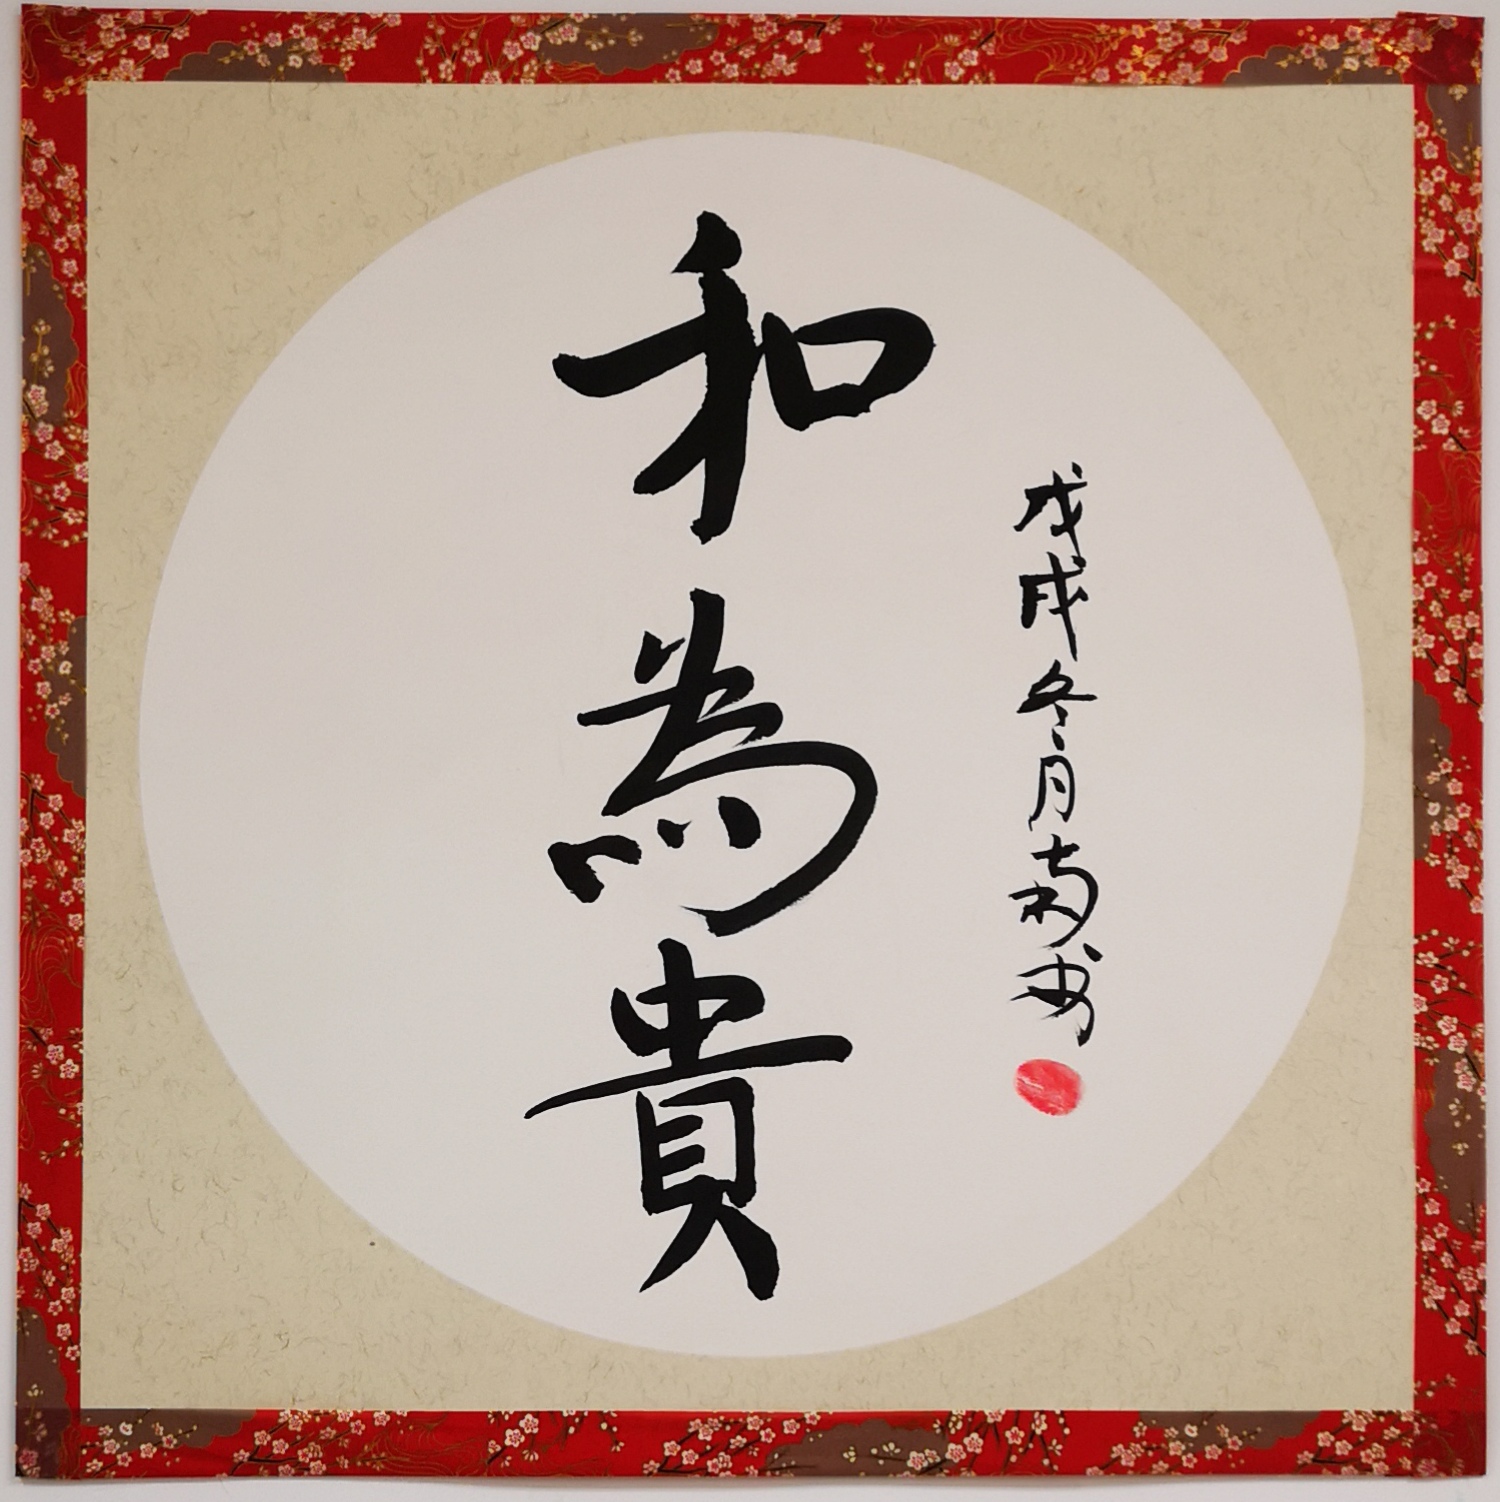 和為貴
戊戌冬月南书